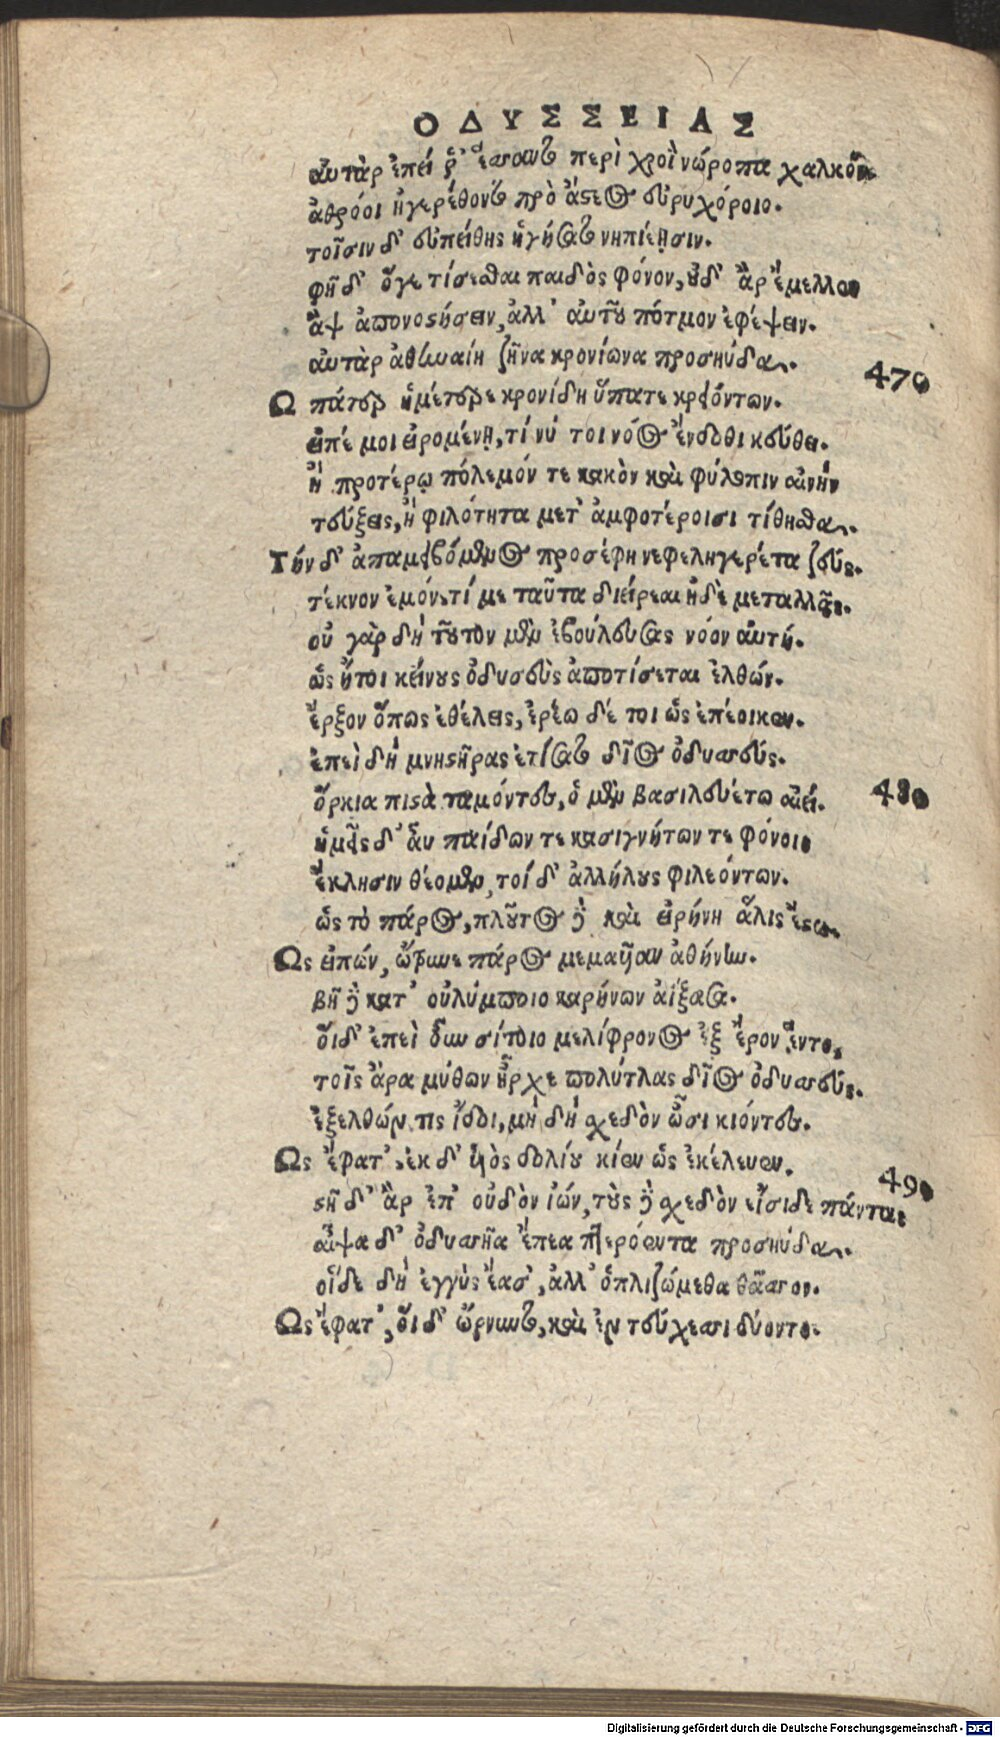 ΟΔΥΣΣΕΙΑΣ
αὐτὰρ ἐπεί ῥ' ἕσσαντο περὶ χροῒ νώροπα χαλκὸν
ἀθρόοι ἠγερέθοντο πρὸ ἄστεος εὐρυχόροιο.
τοῖσιν δ' εὐπείθης ἡγήσατο νηπιέῃσιν.
φῆ δ' ὅγε τίσεσθαι παιδὸς φόνον, οὐδ' ἂρ ἔμελλεν
ἂψ ἀπονοστήσειν, ἀλλ' αὐτοῦ πότμον ἐφέψειν.
αὐτὰρ ἀθηναίη ζῆνα κρονίωνα προσηύδα.
470
Ω πάτερ ἡμέτερε κρονίδη ὕπατε κρειόντων.
εἰπέ μοι εἰρομένῃ, τί νύ τοι νόος ἔνδοθι κεύθει.
ἢ προτέρω πόλεμόν τε κακὸν καὶ φύλοπιν αἰνὴν
τεύξεις, ἢ φιλότητα μετ' ἀμφοτέροισι τίθησθα.
Τὴν δ' ἀπαμειβόμενος προσέφη νεφεληγερέτα ζεύς.
τέκνον ἐμόν. τί με ταῦτα διείρεαι ἠδὲ μεταλλᾷς.
οὐ γὰρ δὴ τοῦτον μὲν ἐβούλευσας νόον αὐτή.
ὡς ἤτοι κείνους ὀδυσεὺς ἀποτίσεται ἐλθών.
ἔρξον ὅπως ἐθέλεις, ἐρέω δέ τοι ὡς ἐπέοικεν.
ἐπεὶ δὴ μνηστῆρας ἐτίσατο δῖος ὀδυσσεύς.
480
ὅρκια πιστὰ ταμόντες, ὁ μὲν βασιλευέτω αἰεί.
ἡμεῖς δ' ἂυ παίδων τε κασιγνήτων τε φόνοιο
ἔκλησιν θέομεν, τοί δ' ἀλλήλους φιλεόντων.
ὡς τὸ πάρος, πλοῦτος δὲ καὶ εἰρήνη ἅλις ἔστω.
Ως εἰπών, ὤτρυνε πάρος μεμαυῖαν ἀθήνην.
βῆ δὲ κατ' οὐλύμποιο καρήνων ἀίξασα.
ὅι δ' ἐπεὶ οὖν σίτοιο μελίφρονος ἐξ ἔρον ἕντο,
τοῖς ἄρα μύθων ἦρχε πολύτλας δῖος ὀδυσσεύς.
ἐξελθών τις ἴδοι, μὴ δὴ σχεδὸν ὦσι κιόντες.
Ως ἔφατ'. ἐκ δ' υἱὸς δολίου κίεν ὡς ἐκέλευεν.
490
στῆ δ' ἂρ ἐπ' οὐδὸν ἰών, τοὺς δὲ σχεδὸν εἴσιδε πάντας
αἶψα δ' ὀδυσσῆα ἔπεα πτερόεντα προσηύδα.
οἵδε δὴ ἐγγὺς ἔασ', ἀλλ' ὁπλιζώμεθα θᾶσσον.
Ως ἔφατ', ὅι δ' ὤρνυντο, καὶ ἐν τεύχεσσι δύοντο.
Digitalisierung gefördert durch die Deutsche Forschungsgemeinschaft - DFG